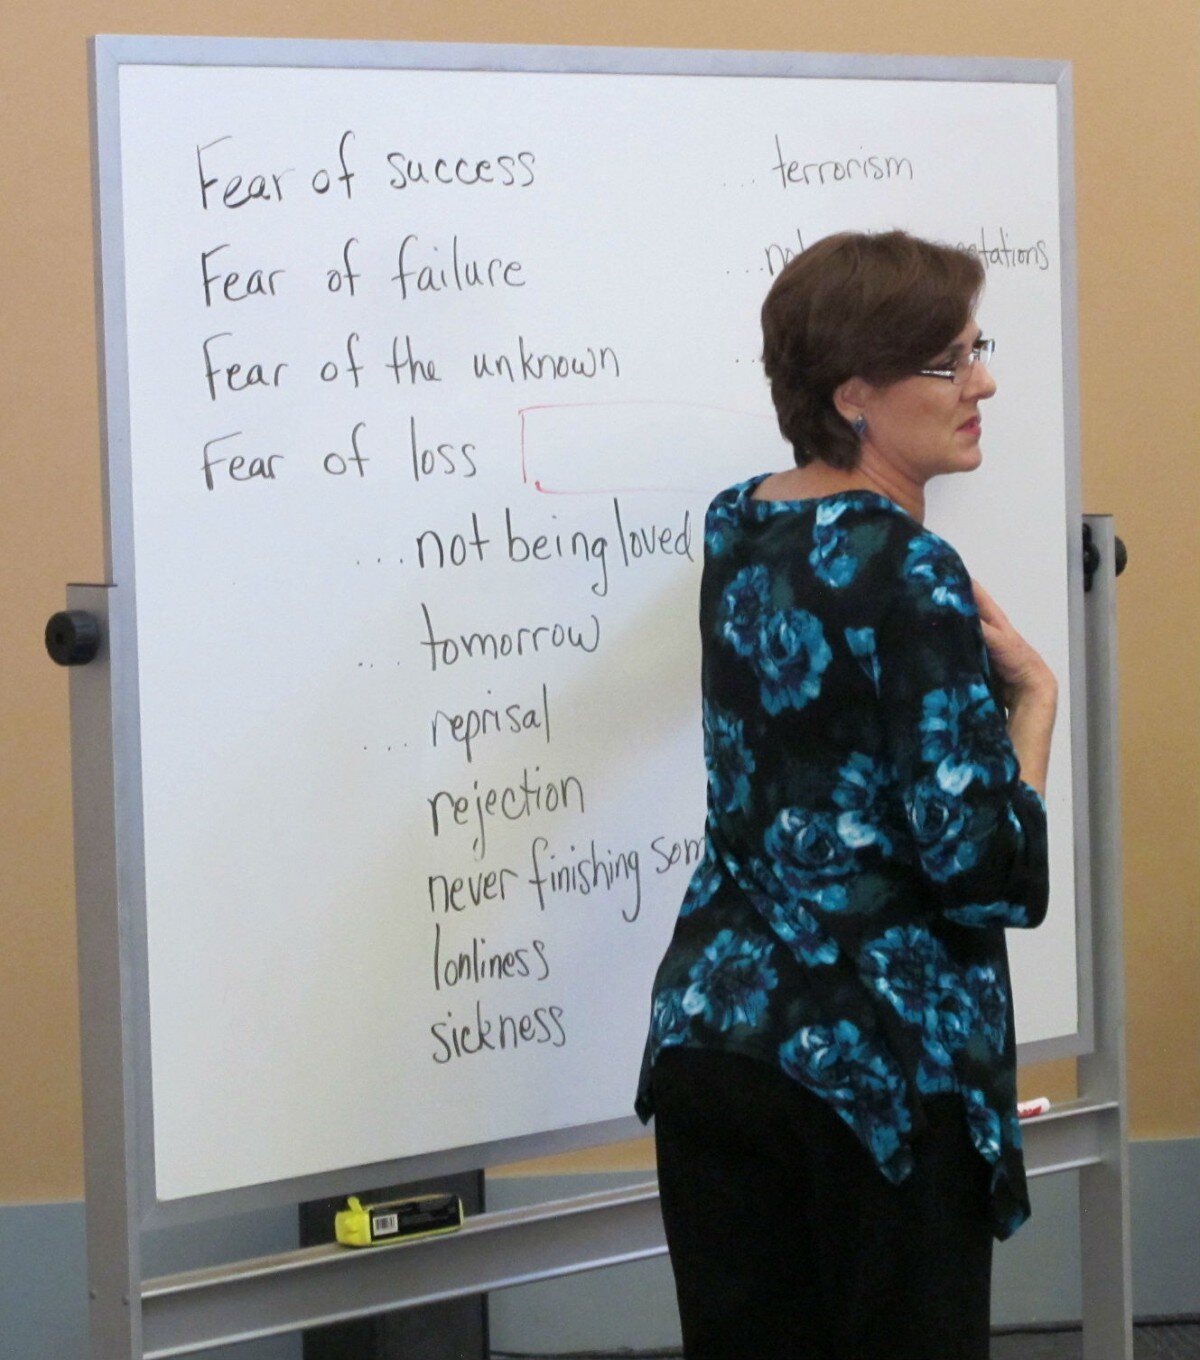 Fear of success
Fear of failure
Fear of the unknown
Fear of loss
... not being loved
... tomorrow
... reprisal
rejection
never finishing
lonliness
sickness
... terrorism
...
...